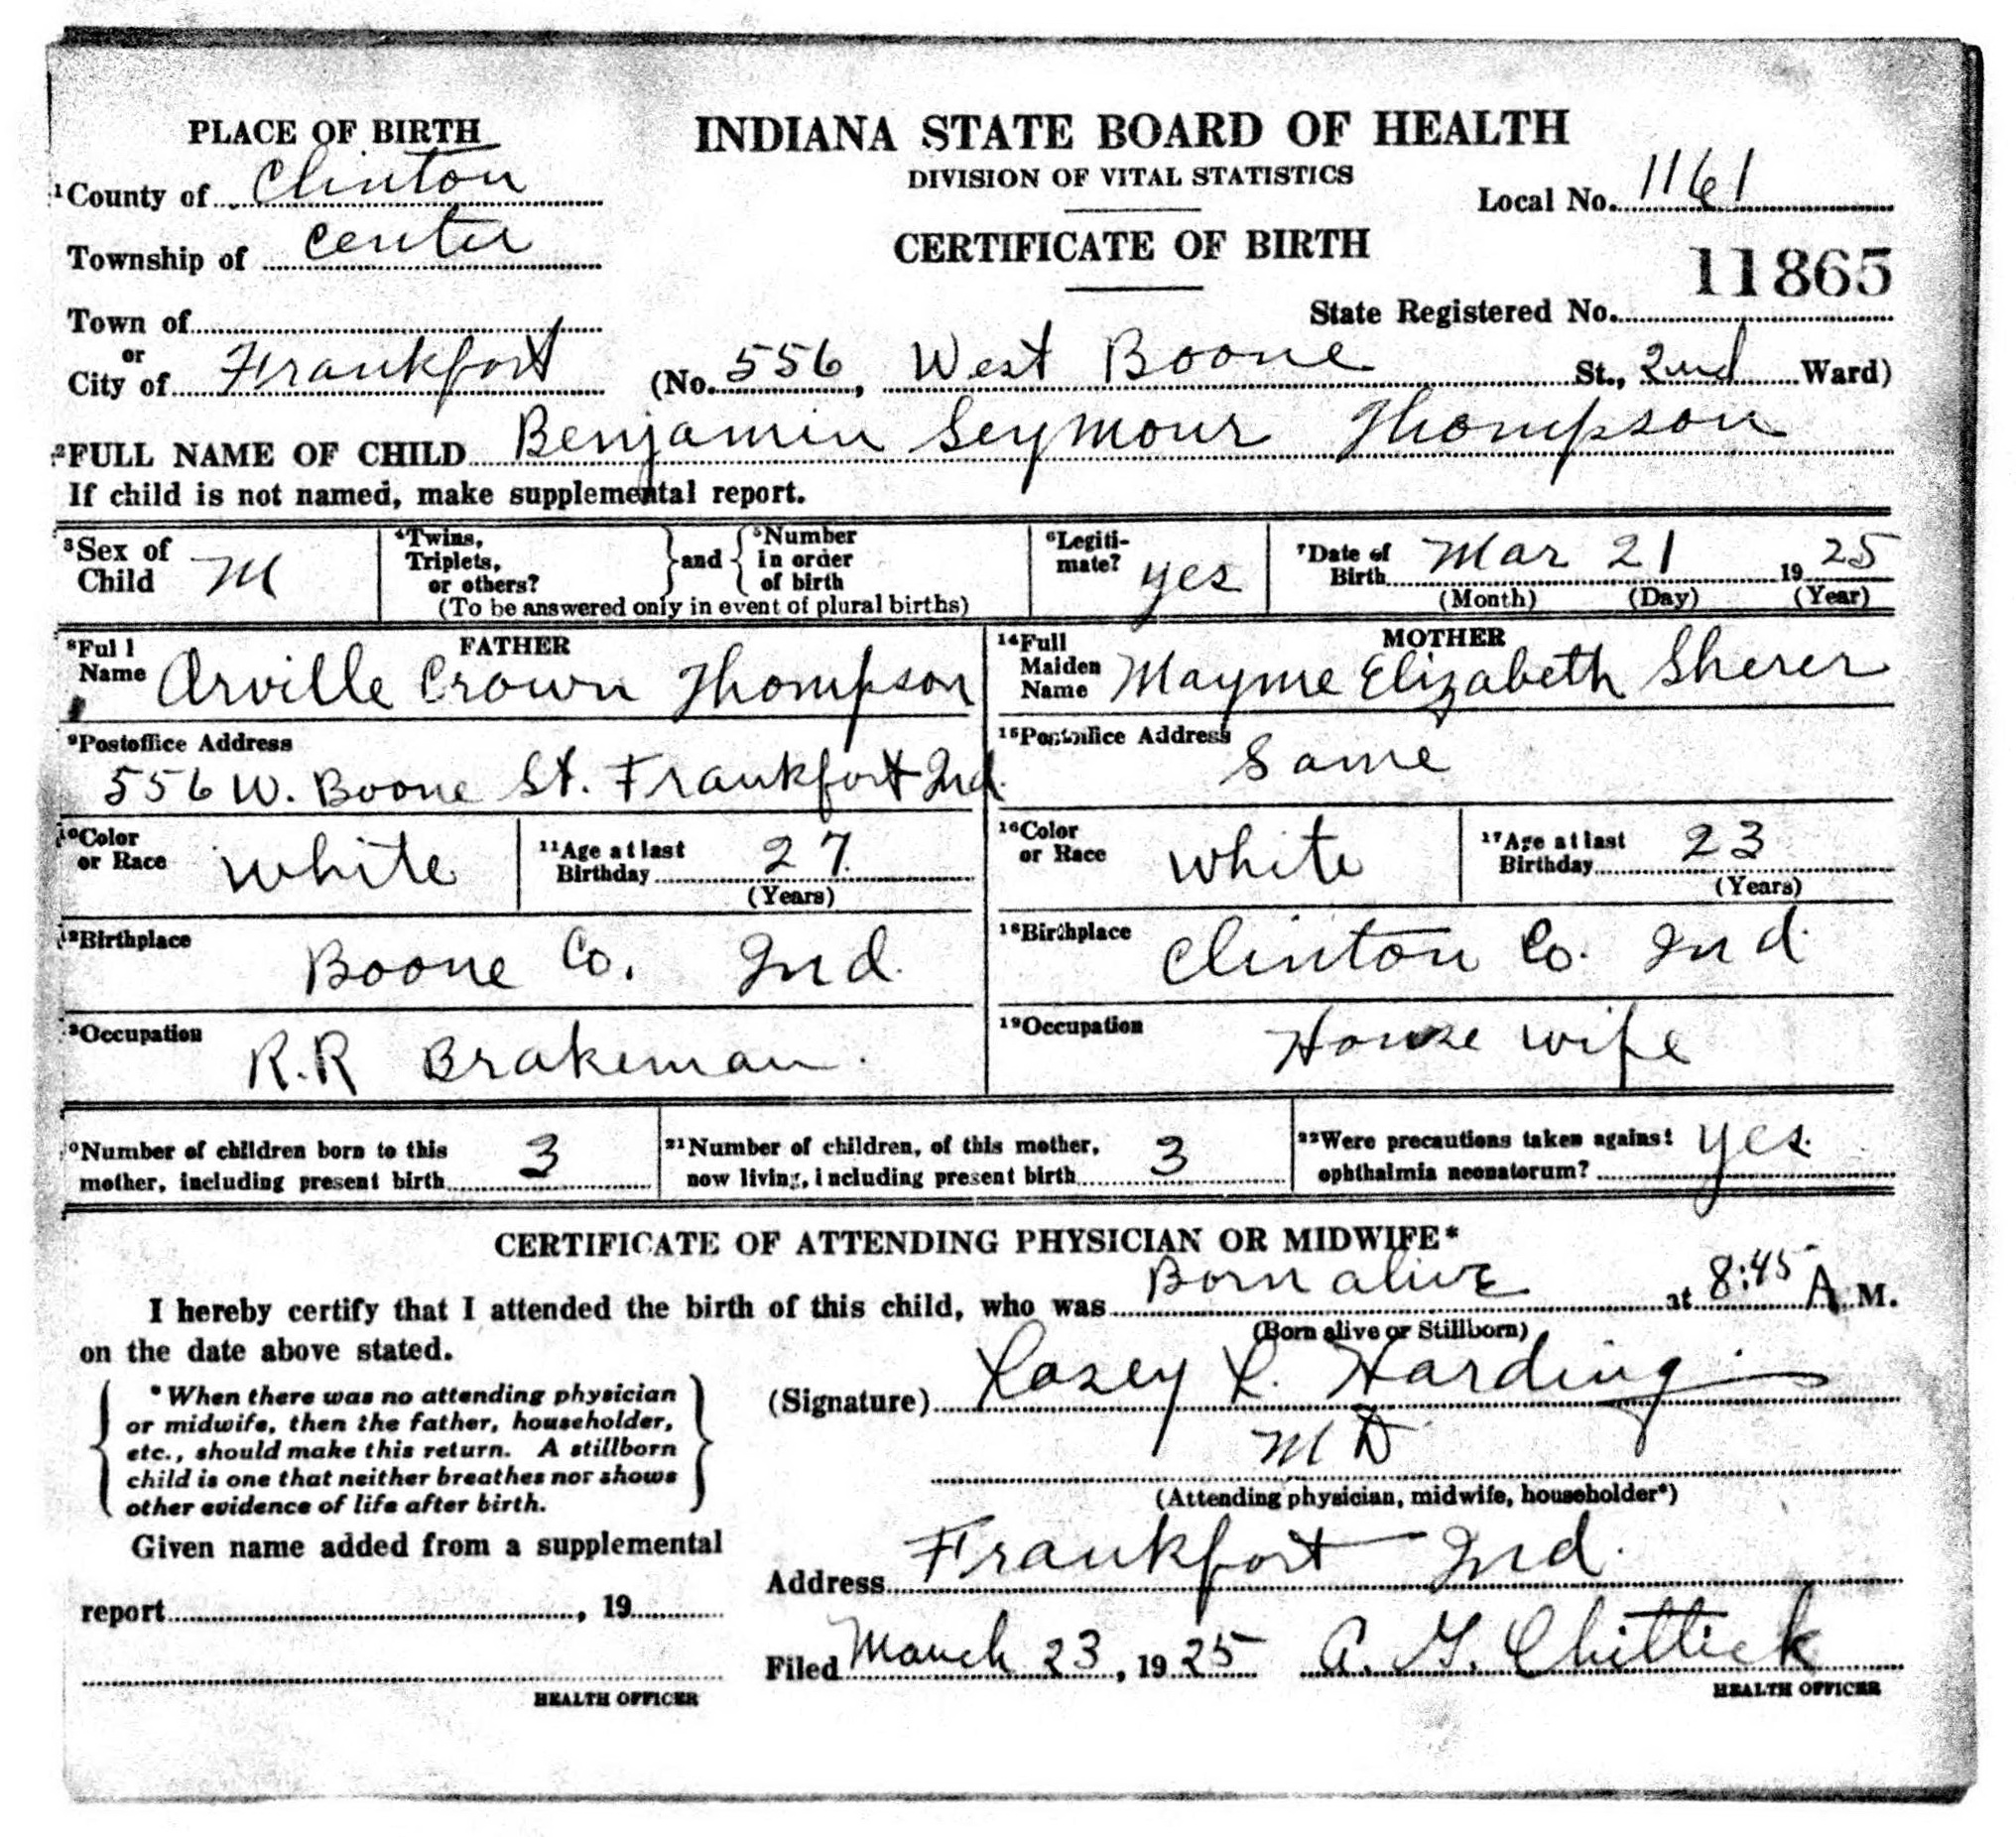 PLACE OF BIRTH
INDIANA STATE BOARD OF HEALTH
DIVISION OF VITAL STATISTICS
1 County of Clinton
Local No. 1161
Township of Center
CERTIFICATE OF BIRTH
11865
Town of
State Registered No.
or
City of Frankfort (No. 556, West Boone St., 2nd Ward)
2 FULL NAME OF CHILD Benjamin Seymour Thompson
If child is not named, make supplemental report.
3 Sex of Child M
4 Twins, Triplets, or others? } and { 5 Number in order of birth
(To be answered only in event of plural births)
6 Legitimate? yes
7 Date of Birth Mar 21 19 25
(Month) (Day) (Year)
FATHER
8 Full Name Arville Crown Thompson
MOTHER
14 Full Maiden Name Mayme Elizabeth Sherer
9 Postoffice Address
556 W. Boone St. Frankfort Ind.
15 Postoffice Address Same
10 Color or Race White
11 Age at last Birthday 27
(Years)
16 Color or Race White
17 Age at last Birthday 23
(Years)
12 Birthplace Boone Co. Ind.
18 Birthplace Clinton Co. Ind.
3 Occupation R.R Brakeman.
19 Occupation House wife
0 Number of children born to this mother, including present birth 3
21 Number of children, of this mother, now living, including present birth 3
22 Were precautions taken against ophthalmia neonatorum? yes.
CERTIFICATE OF ATTENDING PHYSICIAN OR MIDWIFE*
I hereby certify that I attended the birth of this child, who was Born alive at 8:45 A.M.
(Born alive or Stillborn)
on the date above stated.
* When there was no attending physician
or midwife, then the father, householder,
etc., should make this return. A stillborn
child is one that neither breathes nor shows
other evidence of life after birth.
(Signature) L. Harding
M D
(Attending physician, midwife, householder*)
Given name added from a supplemental
report, 19
HEALTH OFFICER
Address Frankfort Ind.
Filed March 23, 19 25 A. G. Chittick
HEALTH OFFICER